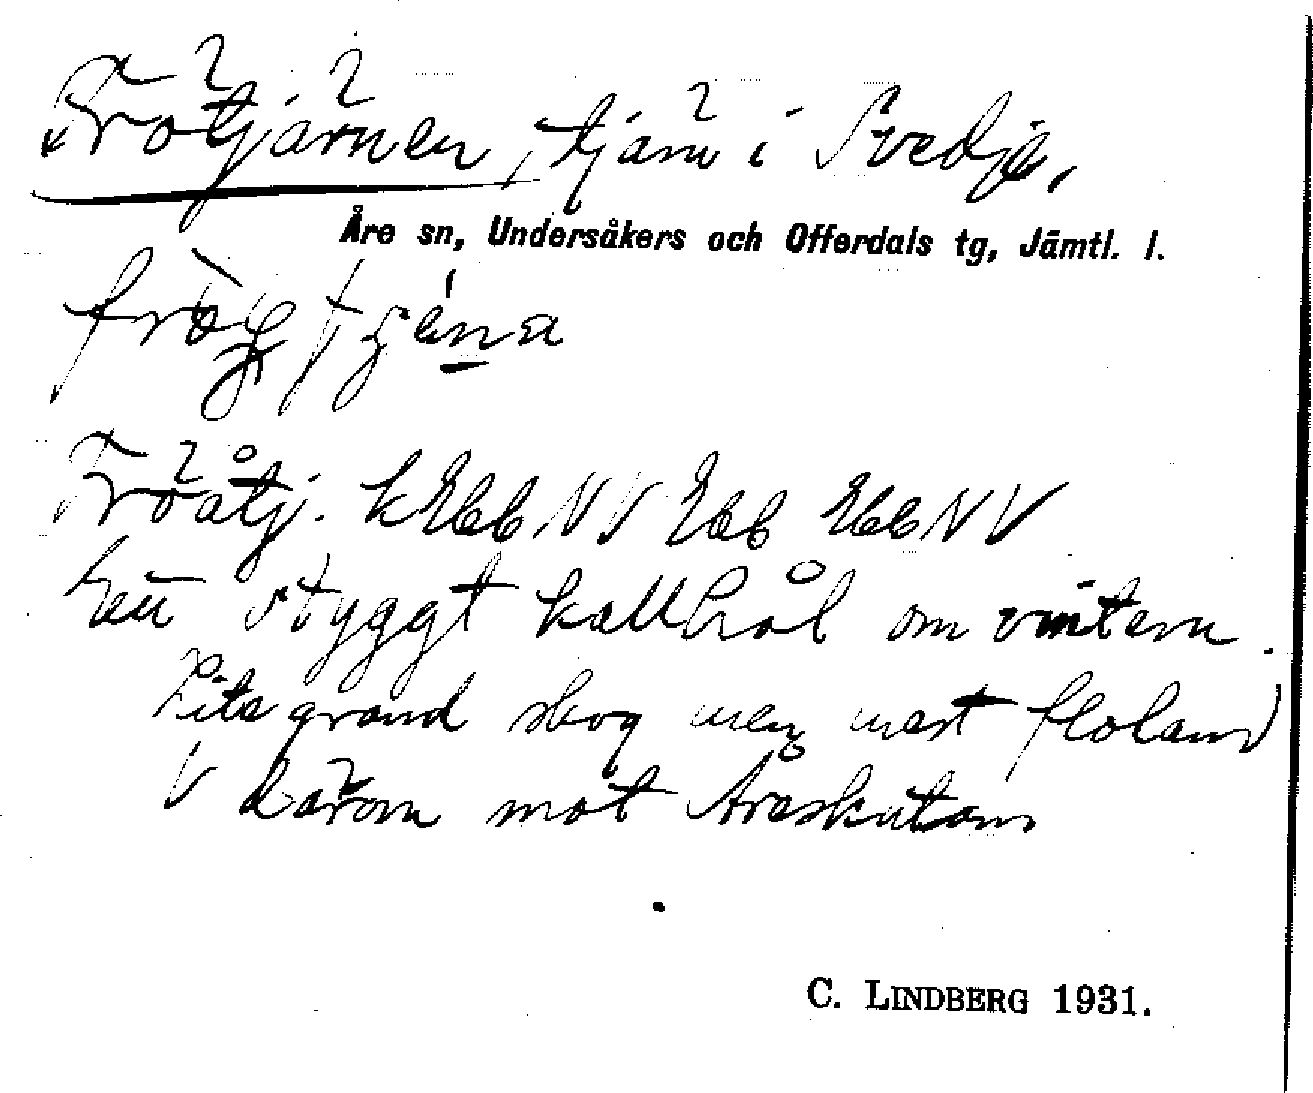 Frötjärnen, tjärn i Svedje,
Åre sn, Undersåkers och Offerdals tg, Jämtl. l.
Fröåtj. k Ebb NV Ebb EbbNV
Ett styggt kallhål om vintern.
Lite grand skog men mest floland
V därom mot Åreskutan
C. LINDBERG 1931.